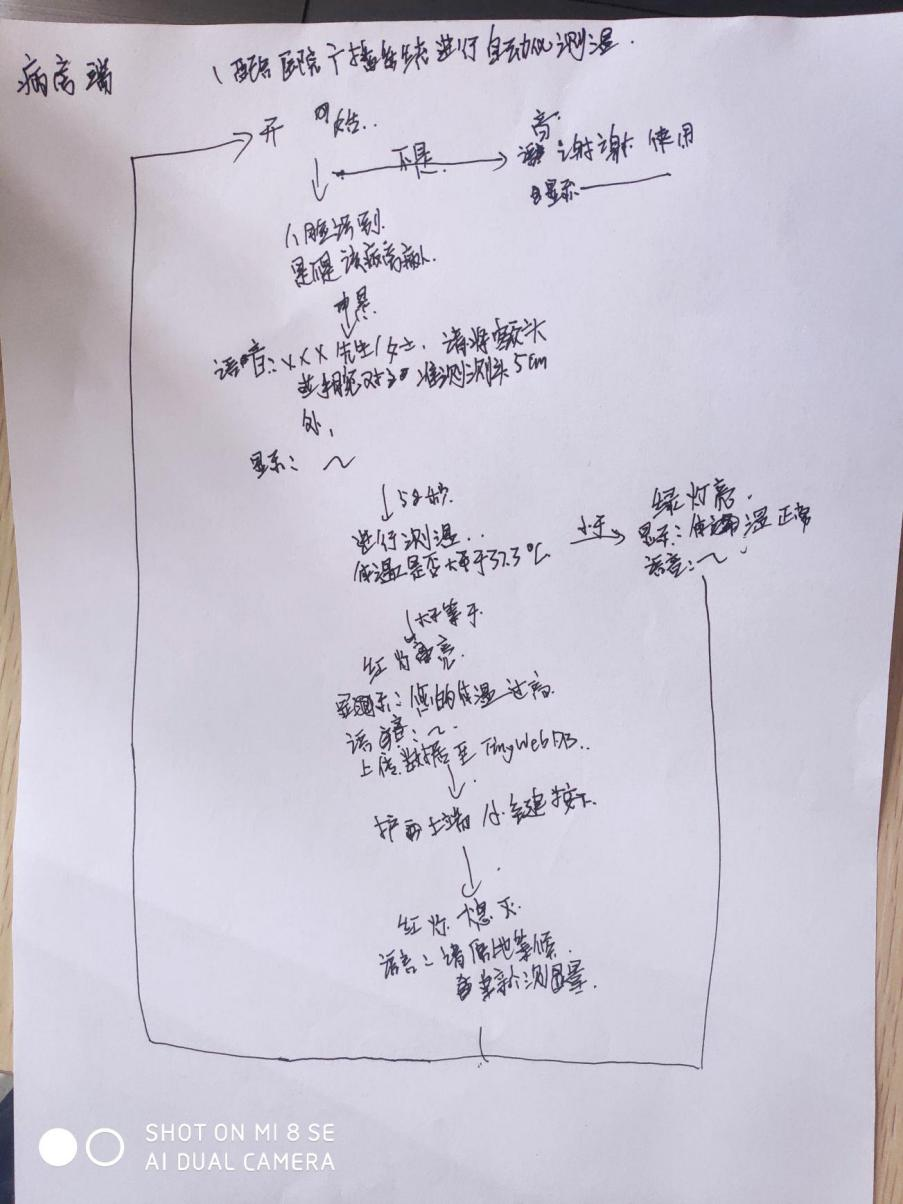 病房端
1 配合医院广播系统进行自动化测温.
开始..
不是
语音 谢谢使用
显示——
人脸识别
是不是该病房病人.
是
语音:XXX先生/女士,请将额头
对准测温头5cm
处,
显示:~
↓5秒.
进行测温..
体温是否大于37.3℃
小于
绿灯亮.
显示:体温正常
语音:~
大于等于
红灯亮.
显示:您的体温过高
语音:~
上传数据至TinyWebDB..
护士端 按键按下.
红灯熄灭
语音:请原地等候.
重新测量.
SHOT ON MI 8 SE
AI DUAL CAMERA